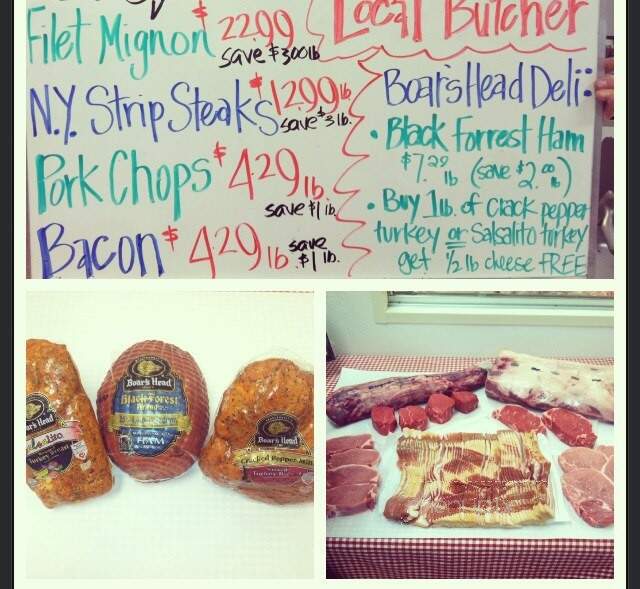 Local Butcher
Filet Mignon $22.99
save $3.00 lb
N.Y. Strip Steaks $12.99 lb
save $3 lb.
Pork Chops $4.29 lb
save $1 lb
Bacon $4.29 lb save $1 lb.
Boar's Head Deli:
• Black Forrest Ham
$7.29 lb (save $2.00 lb)
• Buy 1 lb. of Crack pepper
turkey or Salsalito turkey
get 1/2 lb cheese FREE
Boar's Head
Turkey Breast
Boar's Head
Black Forest
HAM
Boar's Head
Cracked Pepper Mill